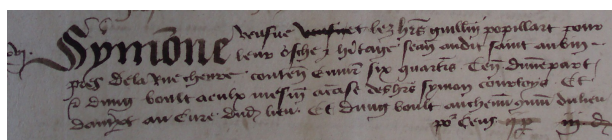 Symone veufue et les hrs guillm popillart pour
leur osche & hritage sean audit saint aubin
pres de la Rue chenre conten Enuir six quartrs Ten dune part
& dung boult a eulx mesm a cause des hrs symon courtoys Et
daultre au Cure dud lieu Et dung boult au chemin du lieu
po Cens